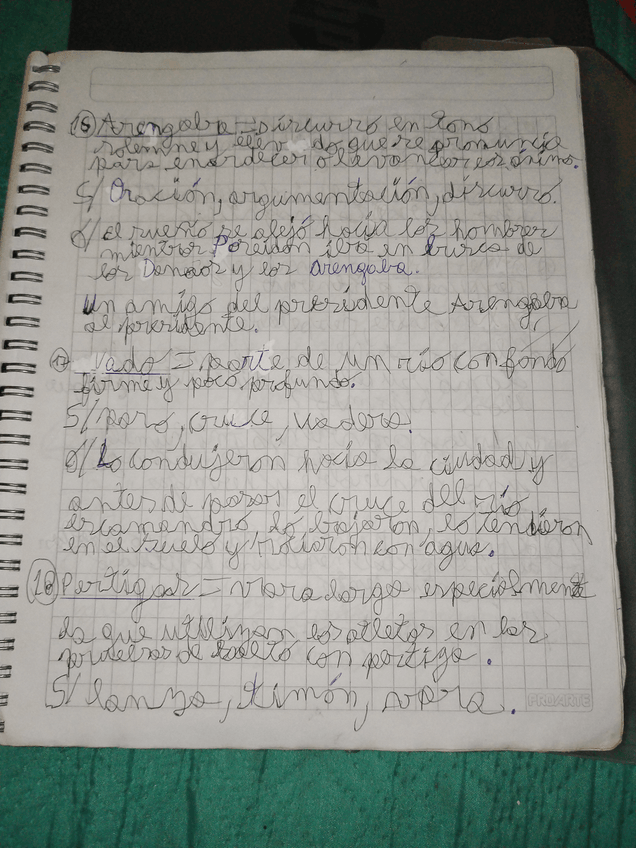 16 Arengaba = Discurso en tono
solemne y elevado que se pronuncia
para enardecer o levantar los ánimos.
S/ Oración, argumentación, discurso.
O/ El sueño se alejó hacia los hombres
mientras Poseidón iba en busca de
los Danaos y los Arengaba.
Un amigo del presidente Arengaba
al presidente.
17 Vado = parte de un río con fondo
firme y poco profundo.
S/ paso, cruce, vadera.
O/ Lo condujeron hacia la ciudad y
antes de pasar el cruce del río
escamandro, lo bajaron, lo tendieron
en el suelo y rociaron con agua.
18 Pertigas = Vara larga especialmente
la que utilizan los atletas en las
pruebas de salto con pertiga.
S/ lanza, timón, vara.
PROARTE